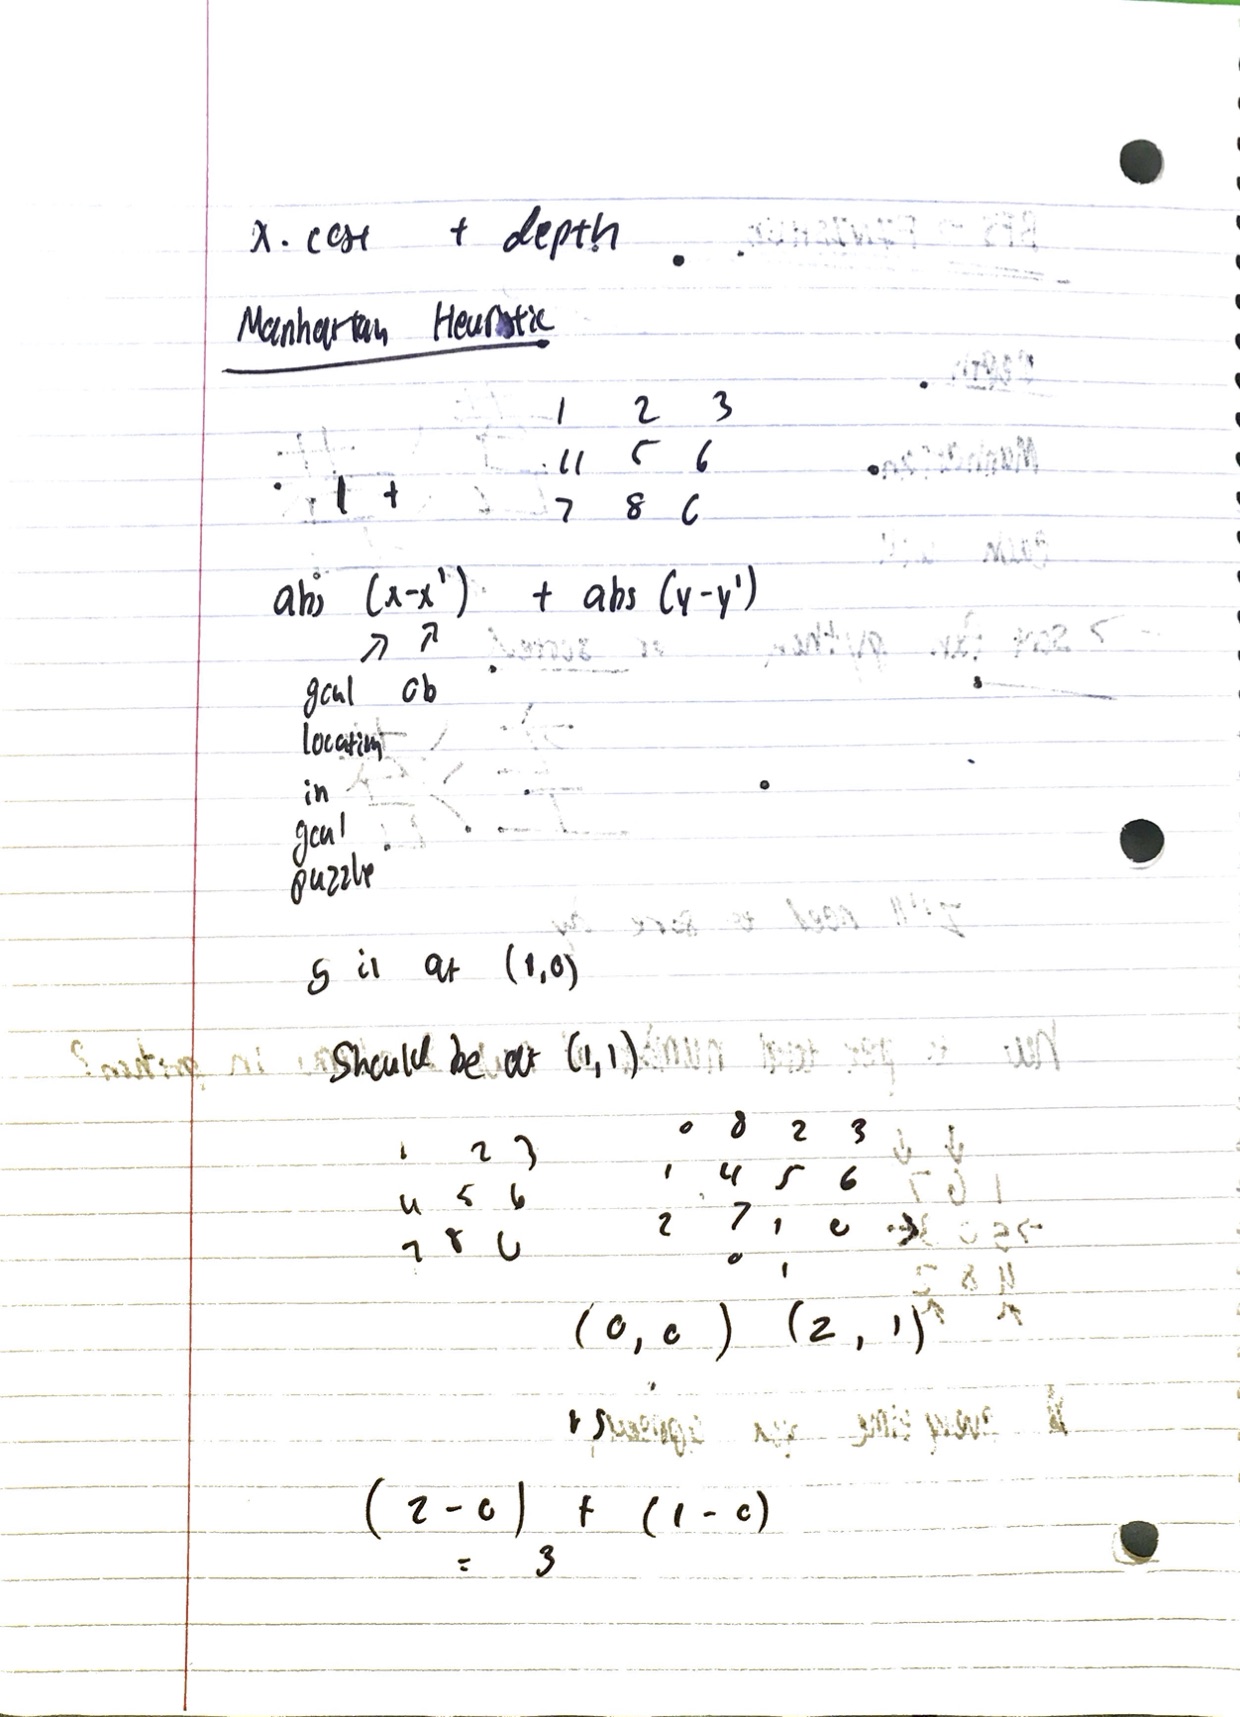 x. cost + depth
Manhattan Heuristic
1 2 3
4 5 6
1 +
7 8 0
abs (x-x') + abs (y-y')
goal ob
location
in
goal
puzzle
5 is at (1,0)
Should be at (1,1)
1 2 3
4 5 6
7 8 0
0 8 2 3
1 4 5 6
2 7 1 0
0 1
(0,0) (2,1)
(2-0) + (1-0)
= 3